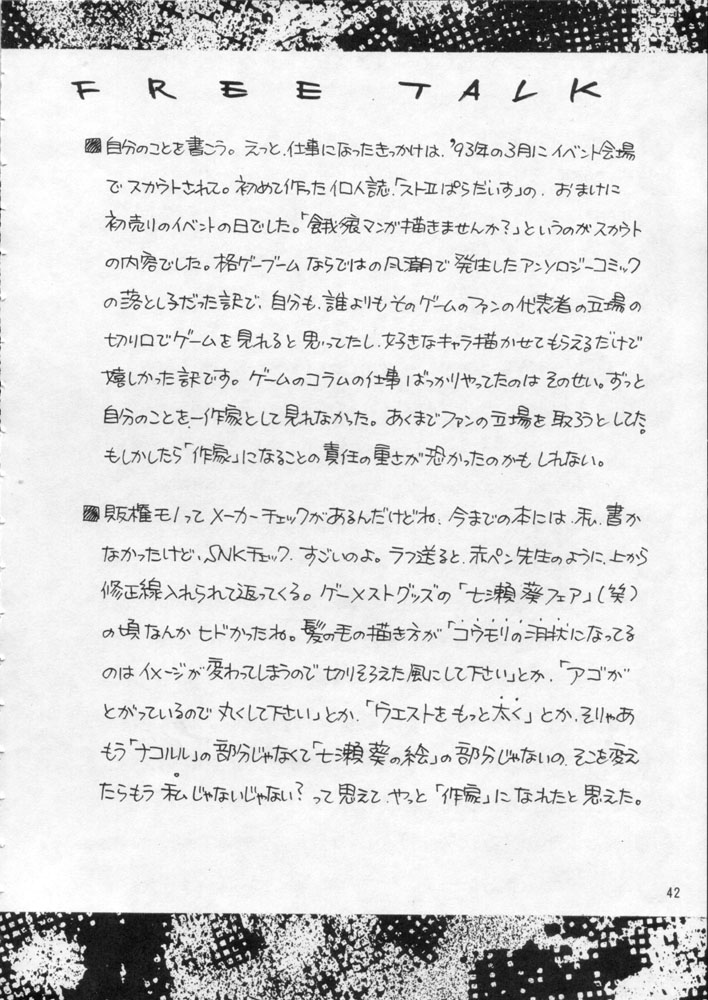 FREE TALK
自分のことを書こう。えっと、仕事になったきっかけは、'93年の3月にイベント会場
でスカウトされて。初めて作った個人誌、「ストⅡぱらだいす」の、おまけに
初売りのイベントの日でした。「餓狼マンガ描きませんか?」というのがスカウト
の内容でした。格ゲーブームならではの風潮で発生したアンソロジーコミック
の落とし子だった訳で、自分も、誰よりもそのゲームのファンの代表者の立場の
切り口でゲームを見れると思ってたし、好きなキャラ描かせてもらえるだけで
嬉しかった訳です。ゲームのコラムの仕事ばっかりやってたのはそのせい。ずっと
自分のことを、一作家として見れなかった。あくまでファンの立場を取ろうとしてた。
もしかしたら「作家」になることの責任の重さが恐かったのかもしれない。
販権モノってメーカーチェックがあるんだけどね、今までの本には、私、書か
なかったけど、SNKチェック、すごいのよ。ラフ送ると、赤ペン先生のように、上から
修正線入れられて返ってくる。ゲーメストグッズの「七瀬葵フェア」(笑)
の頃なんかヒドかったね。髪の毛の描き方が「コウモリの羽状になってる
のはイメージが変わってしまうので切りそろえた風にして下さい」とか、「アゴが
とがっているので丸くして下さい」とか、「ウエストをもっと太く」とか、そりゃあ
もう「ナコルル」の部分じゃなくて「七瀬葵の絵」の部分じゃないの、そこを変え
たらもう私じゃないじゃない?って思えて、やっと「作家」になれたと思えた。
42